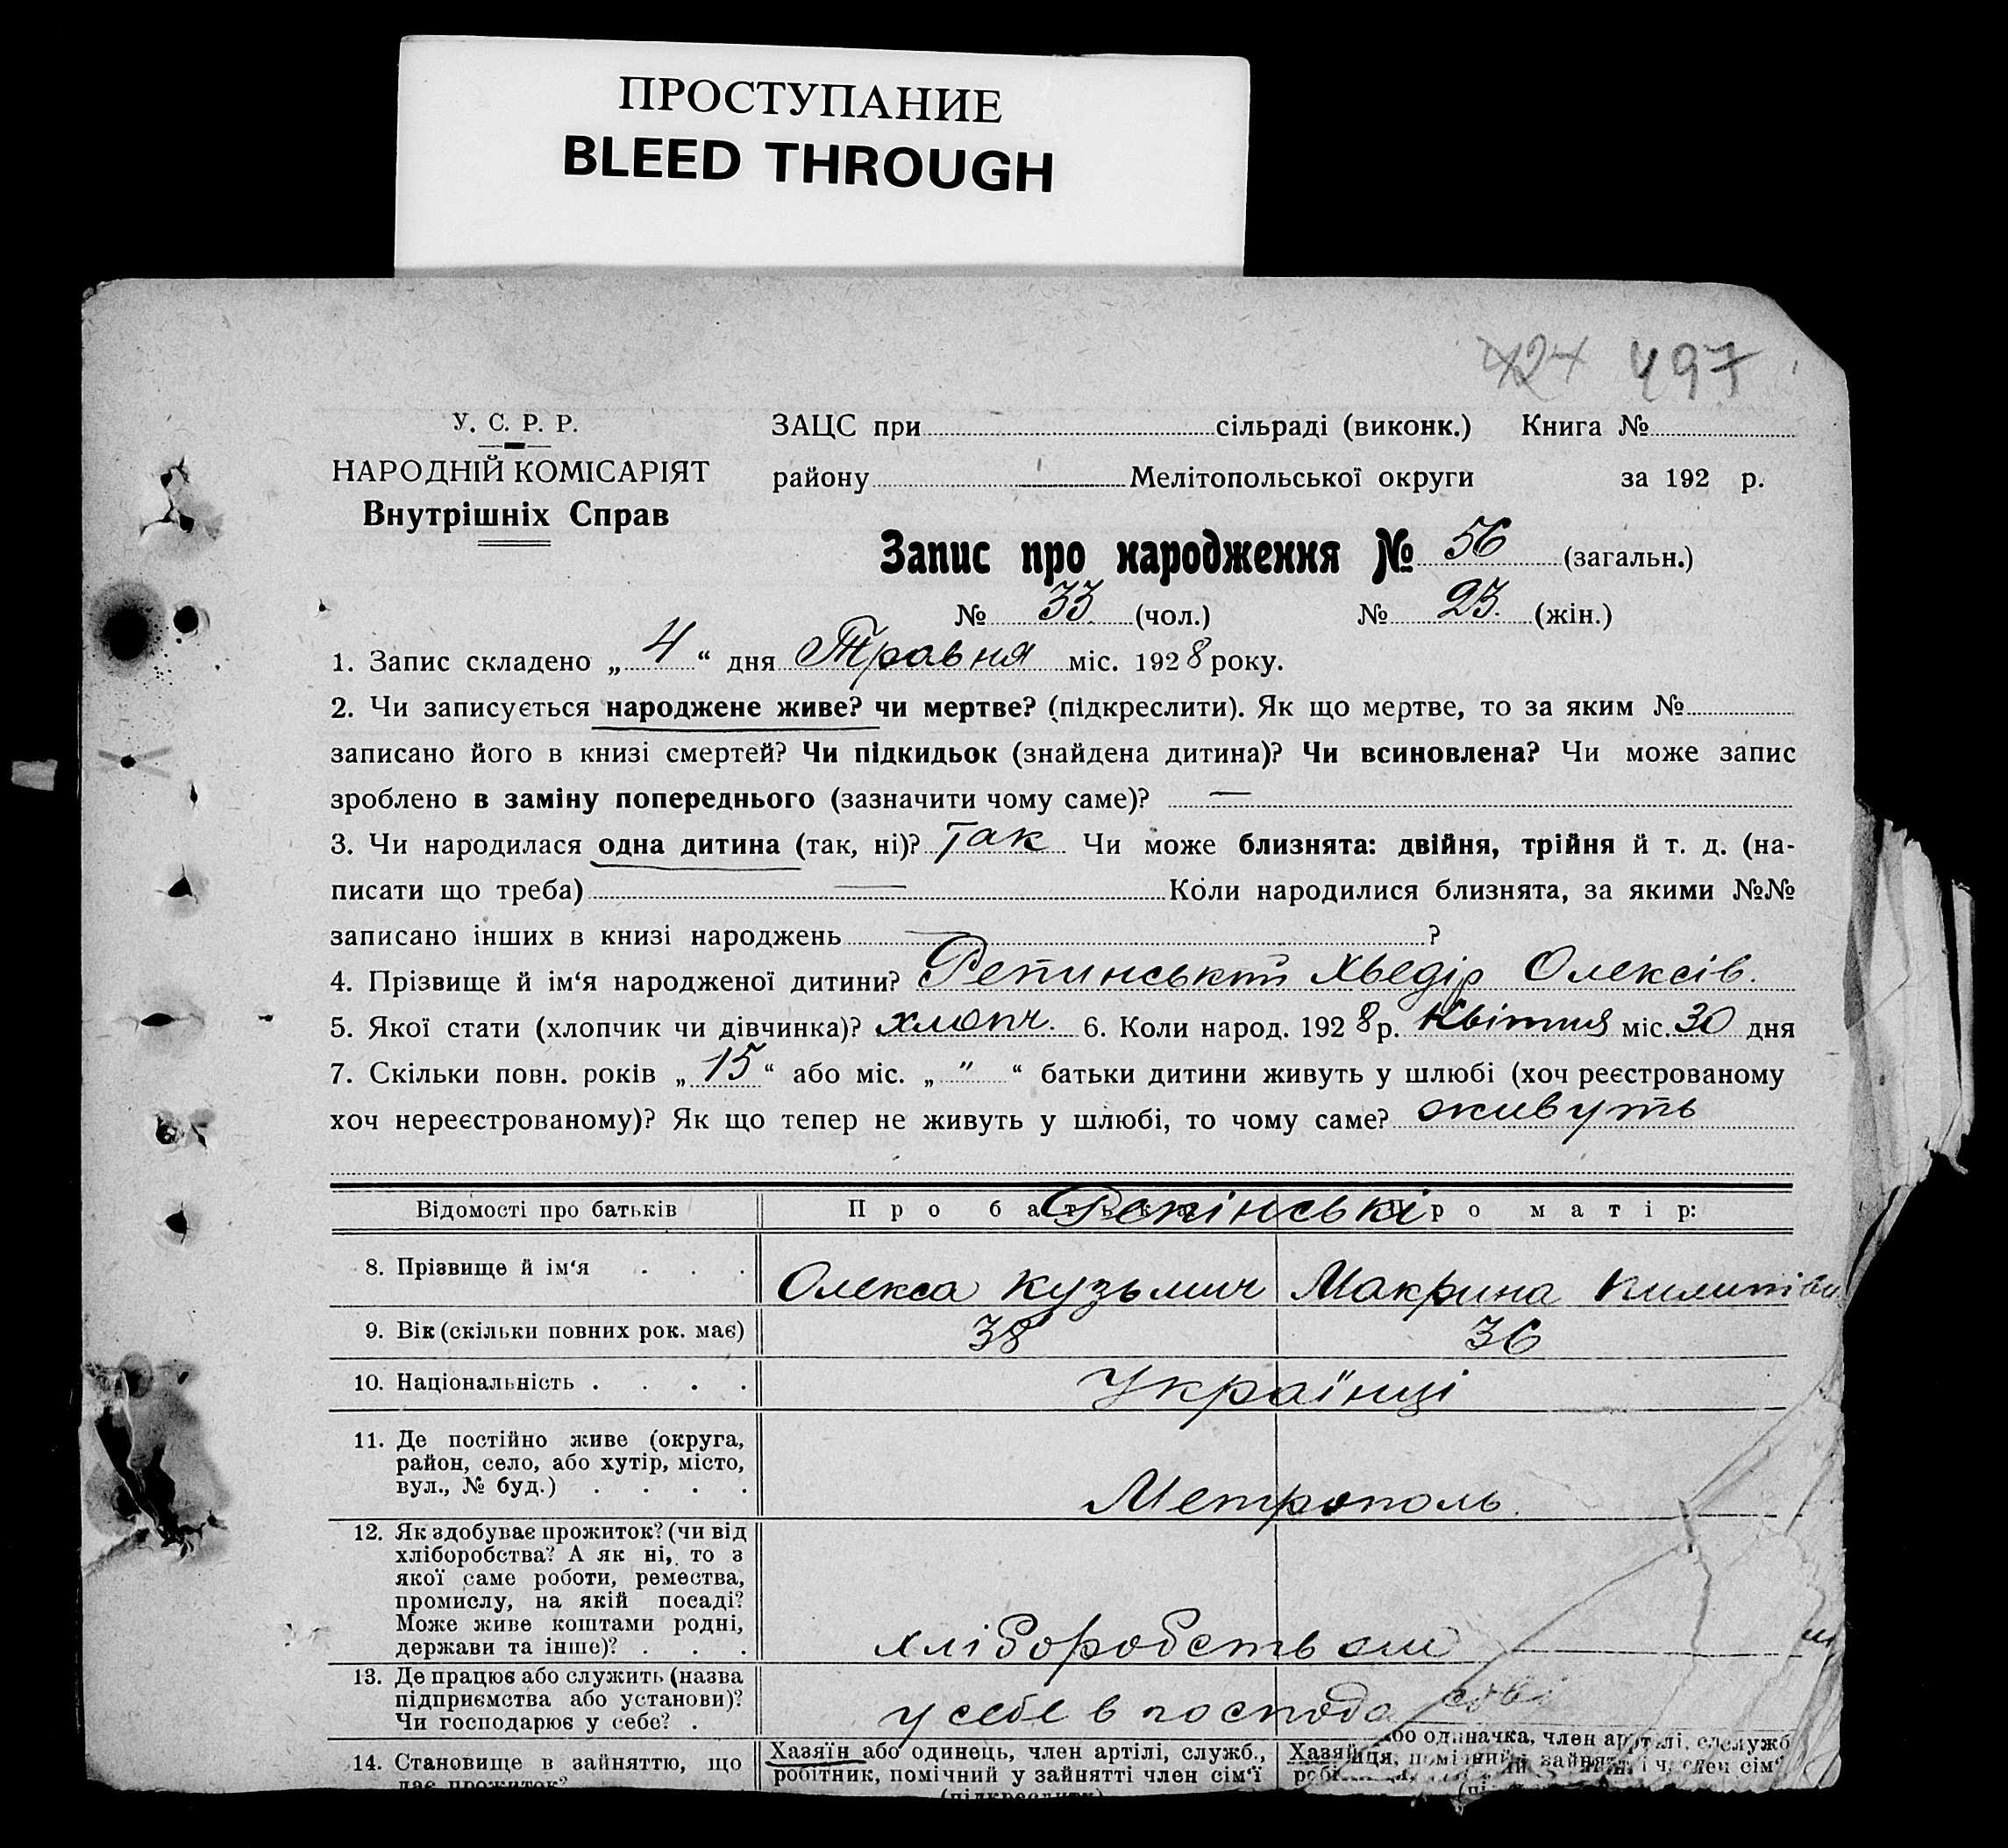 ПРОСТУПАНИЕ
BLEED THROUGH
424 497
У. С. Р. Р.
НАРОДНІЙ КОМІСАРІЯТ
Внутрішніх Справ
ЗАЦС при сільраді (виконк.) Книга №
району Мелітопольської округи за 192 р.
Запис про народження № 56 (загальн.)
№ 33 (чол.) № 23. (жін.)
1. Запис складено „ 4 “ дня Травня міс. 1928 року.
2. Чи записується народжене живе? чи мертве? (підкреслити). Як що мертве, то за яким №
записано його в книзі смертей? Чи підкидьок (знайдена дитина)? Чи всиновлена? Чи може запис
зроблено в заміну попереднього (зазначити чому саме)? —
3. Чи народилася одна дитина (так, ні)? Так Чи може близнята: двійня, трійня й т. д. (на-
писати що треба) — Коли народилися близнята, за якими №№
записано інших в книзі народжень — ?
4. Прізвище й ім‘я народженої дитини? Репинський Хведір Олексів.
5. Якої стати (хлопчик чи дівчинка)? хлопч. 6. Коли народ. 1928 р. Квітня міс. 30 дня
7. Скільки повн. років „ 15 “ або міс. „ " “ батьки дитини живуть у шлюбі (хоч реєстрованому
хоч нереєстрованому)? Як що тепер не живуть у шлюбі, то чому саме? живуть
Відомості про батьків Про батька Про матір:
Репінські
8. Прізвище й ім‘я . . . Олекса Кузьмич Макрина
9. Вік (скільки повних рок. має) 38 36
10. Національність . . . . Українці
11. Де постійно живе (округа,
район, село, або хутір, місто,
вул., № буд.) . . . . Метрополь.
12. Як здобуває прожиток? (чи від
хліборобства? А як ні, то з
якої саме роботи, ремества,
промислу, на якій посаді?
Може живе коштами родні,
держави та інше)? . . . хліборобством
13. Де працює або служить (назва
підприємства або установи)?
Чи господарює у себе? . у себе в господа
14. Становище в зайняттю, що
дає прожиток?
Хазяїн або одинець, член артілі, служб.,
робітник, помічний у зайнятті член сім‘ї
(підкреслити)
Хазяйця, або одиначка, член артілі, служб